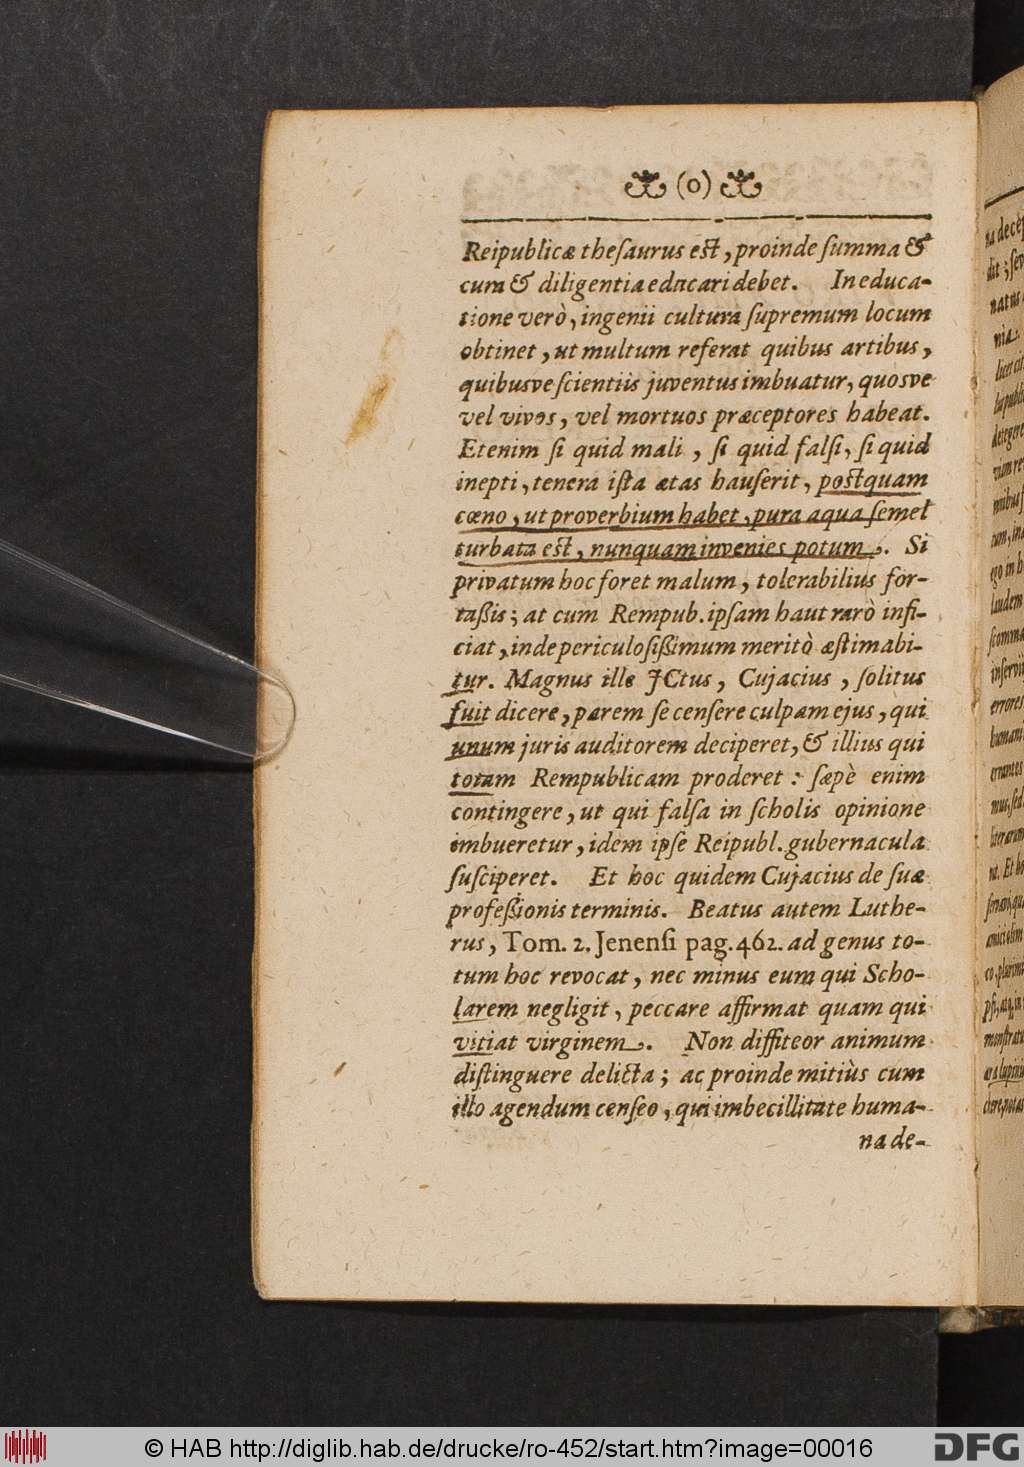 (o)
Reipublicæ theſaurus est, proinde ſumma &
cura & diligentia educari debet. In educa-
tione verò, ingenii cultura ſupremum locum
obtinet, ut multum referat quibus artibus,
quibusve ſcientiis juventus imbuatur, quosve
vel vivos, vel mortuos præceptores habeat.
Etenim ſi quid mali, ſi quid falſi, ſi quid
inepti, tenera iſta ætas hauſerit, postquam
cœno, ut proverbium habet, pura aqua ſemel
turbata est, nunquam invenies potum. Si
privatum hoc foret malum, tolerabilius for-
taßis; at cum Rempub. ipſam haut rarò infi-
ciat, inde periculoſißimum meritò æſtimabi-
tur. Magnus ille JCtus, Cujacius, ſolitus
fuit dicere, parem ſe cenſere culpam ejus, qui
unum juris auditorem deciperet, & illius qui
totam Rempublicam proderet: ſæpè enim
contingere, ut qui falſa in ſcholis opinione
imbueretur, idem ipſe Reipubl. gubernacula
ſuſciperet. Et hoc quidem Cujacius de ſuæ
profeßionis terminis. Beatus autem Luthe-
rus, Tom. 2. Jenenſi pag. 462. ad genus to-
tum hoc revocat, nec minus eum qui Scho-
larem negligit, peccare affirmat quam qui
vitiat virginem. Non diffiteor animum
diſtinguere delicta; ac proinde mitiùs cum
illo agendum cenſeo, qui imbecillitate huma-
na de-
na decep
dit; ſev
natus
nia
© HAB http://diglib.hab.de/drucke/ro-452/start.htm?image=00016
DFG